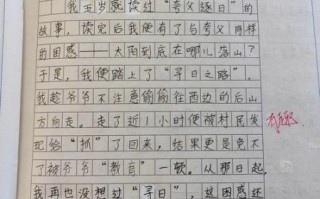 我五岁就读过“夸父逐日”的
故事，读完后我便有了与夸父同样
的困惑——太阳到底在哪儿落山？
于是，我便踏上了“寻日之路”。
我趁爷爷不注意偷偷往西边的后山
方向走。走了近1小时便被村民发
现给“抓”了回来，结果更是免不
了被爷爷“教育”一顿。从那日起，
我再也没想过“寻日”，这困惑还